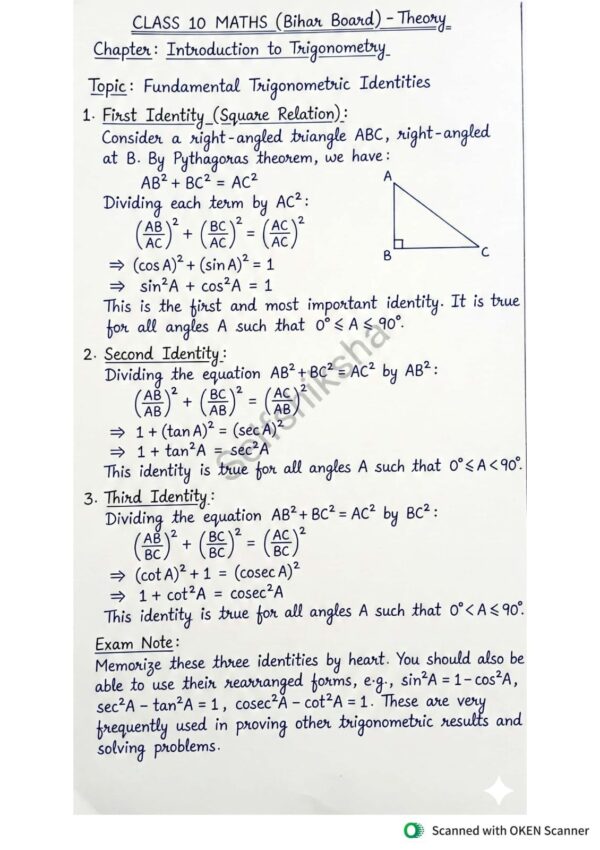 CLASS 10 MATHS (Bihar Board) - Theory
Chapter: Introduction to Trigonometry
Topic: Fundamental Trigonometric Identities
1. First Identity (Square Relation):
Consider a right-angled triangle ABC, right-angled
at B. By Pythagoras theorem, we have:
AB² + BC² = AC²
Dividing each term by AC²:
(AB/AC)² + (BC/AC)² = (AC/AC)²
⇒ (cos A)² + (sin A)² = 1
⇒ sin²A + cos²A = 1
This is the first and most important identity. It is true
for all angles A such that 0° ≤ A ≤ 90°.
A
B
C
2. Second Identity:
Dividing the equation AB² + BC² = AC² by AB²:
(AB/AB)² + (BC/AB)² = (AC/AB)²
⇒ 1 + (tan A)² = (sec A)²
⇒ 1 + tan²A = sec²A
This identity is true for all angles A such that 0° ≤ A < 90°.
3. Third Identity:
Dividing the equation AB² + BC² = AC² by BC²:
(AB/BC)² + (BC/BC)² = (AC/BC)²
⇒ (cot A)² + 1 = (cosec A)²
⇒ 1 + cot²A = cosec²A
This identity is true for all angles A such that 0° < A ≤ 90°.
Exam Note:
Memorize these three identities by heart. You should also be
able to use their rearranged forms, e.g., sin²A = 1 - cos²A,
sec²A - tan²A = 1, cosec²A - cot²A = 1. These are very
frequently used in proving other trigonometric results and
solving problems.
Selfshiksha
Scanned with OKEN Scanner